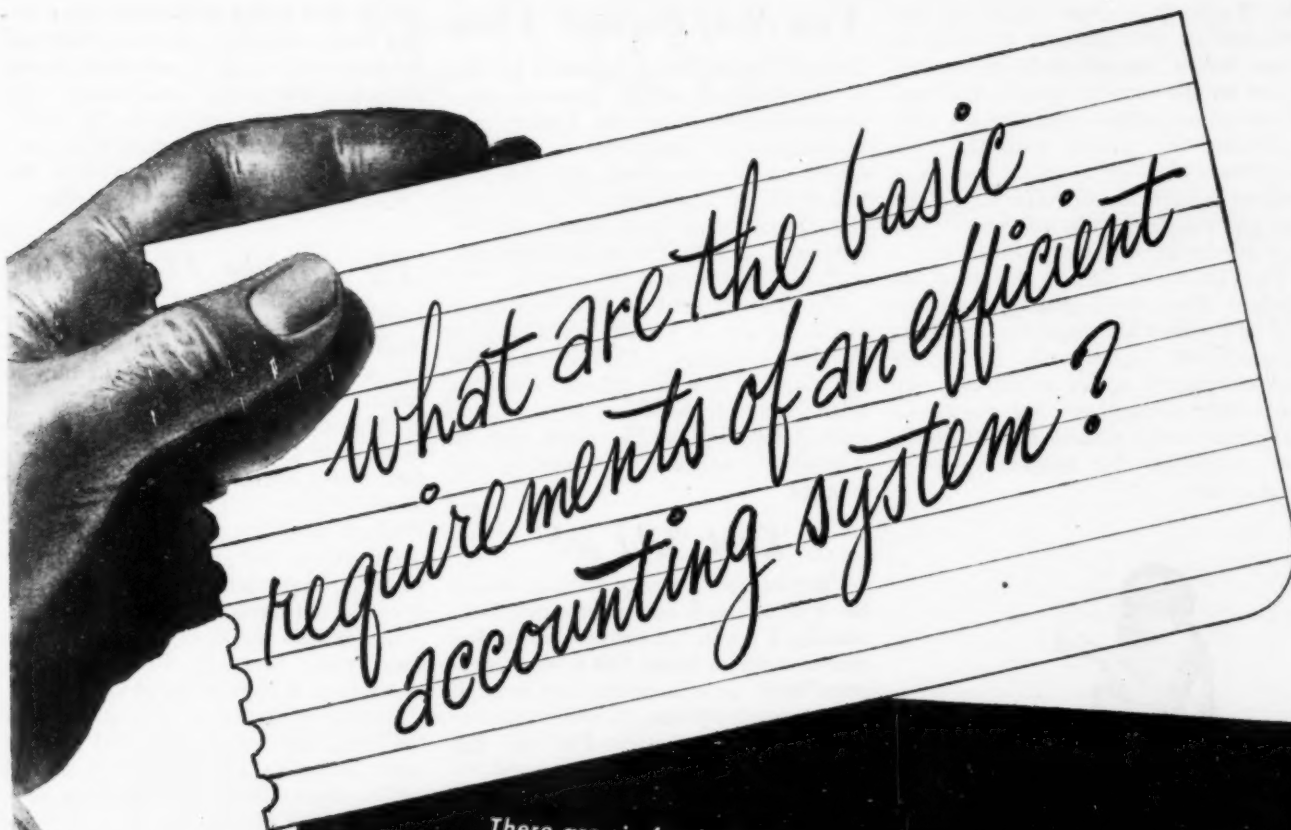 what are the basic
requirements of an efficient
accounting system?
There are